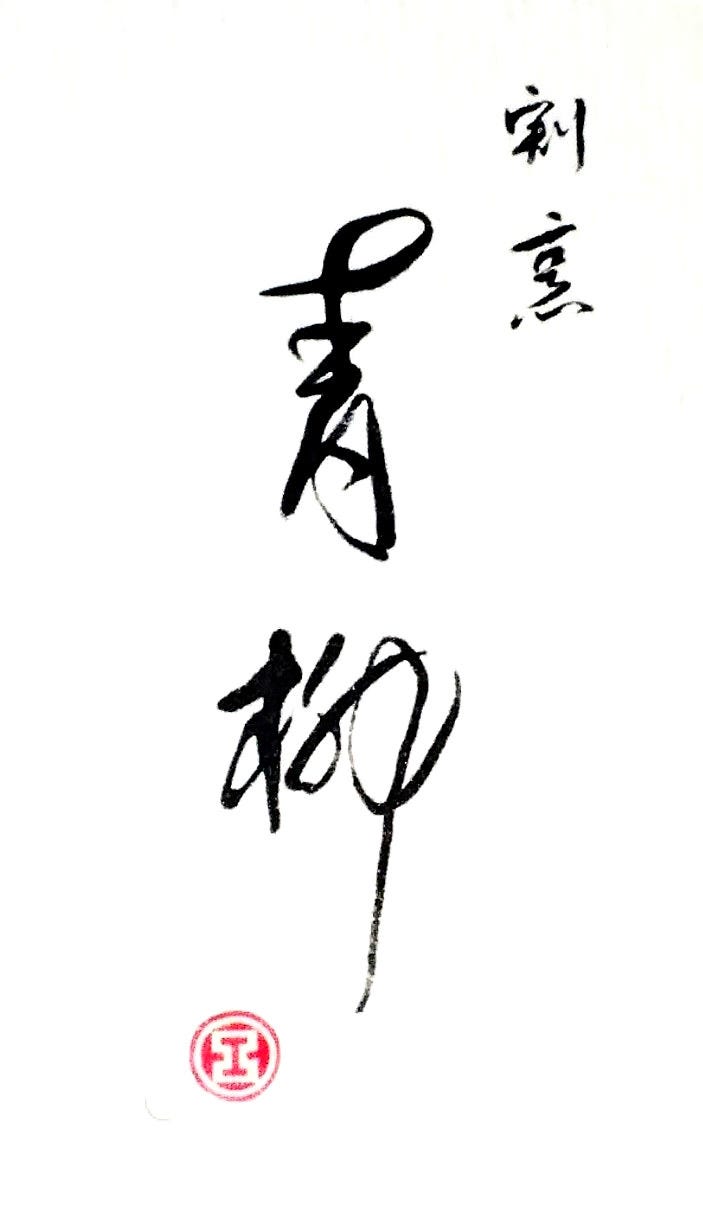 割烹
青柳